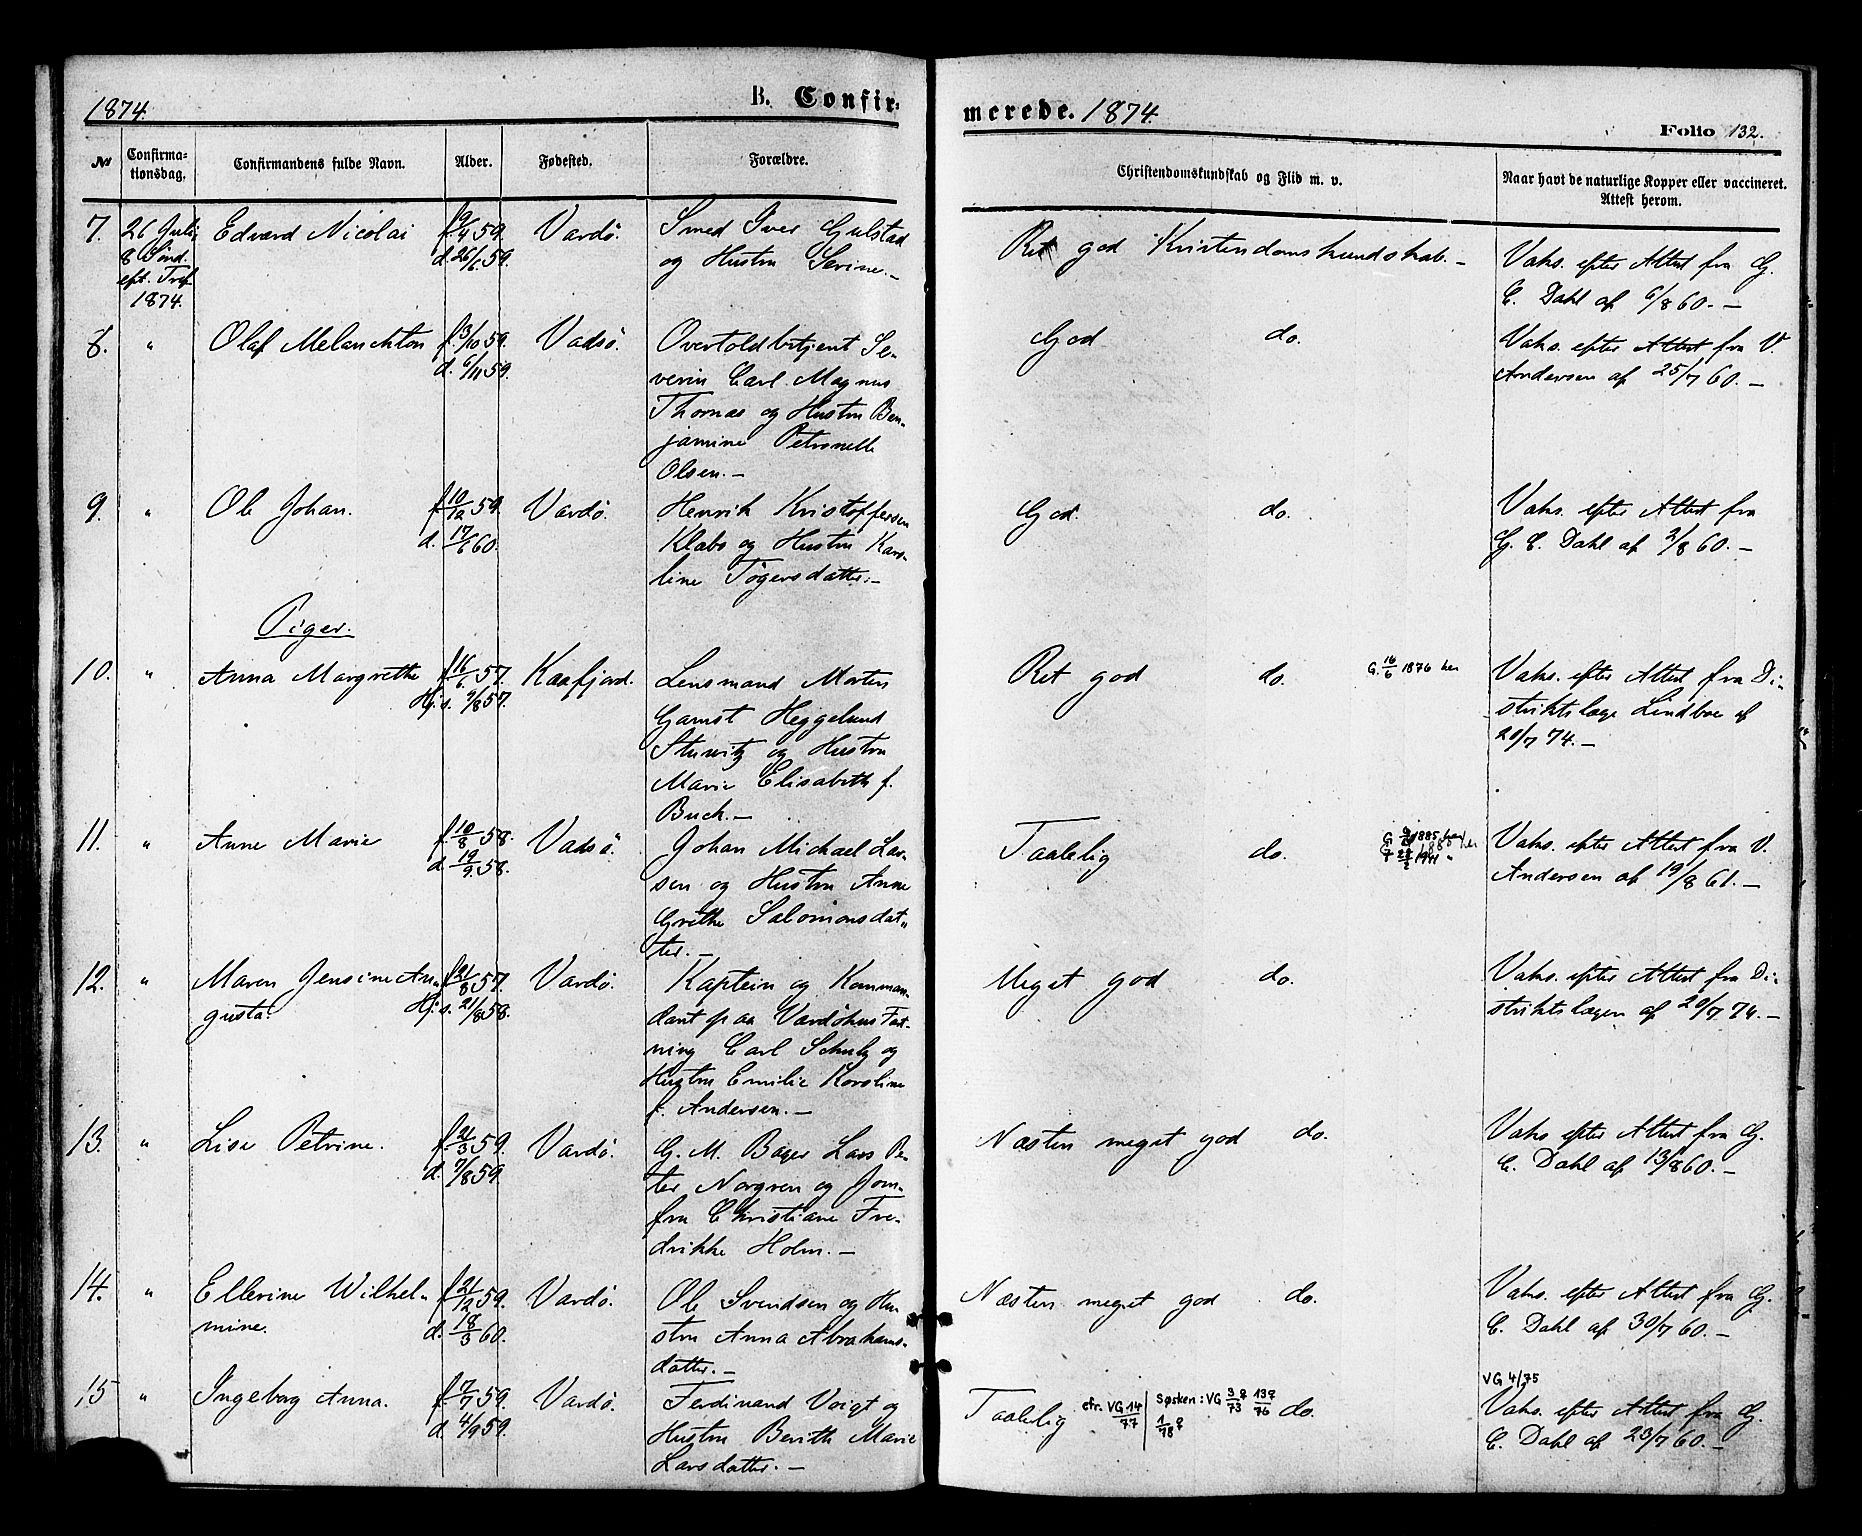 1874. B. Confir-
merede. 1874.
Folio 132.
№ Confirma-tionsdag. Confirmandens fulde Navn. Alder. Fødested. Forældre.
Christendomskundskab og Flid m. v. Naar havt de naturlige Kopper eller vaccineret. Attest herom.
7. 26 Juli Edvard Nicolai f. 9/4 59. Vardø. Smed Iver Gulstad
8 Sønd. d. 26/6 59. og Hustru Serine.-
eft. Tref.
1874.
Ret god Kristendomskundskab.-
Vaks. efter Attest fra G.
C. Dahl af 6/8 60.-
8. " Olaf Melanchton f. 3/10 59. Vadsø. Overtoldbetjent Se-
d. 6/11 59. verin Carl Magnus
Thomas og Hustru Ben-
jamine Petronelle
Olsen.-
God do.
Vaks. efter Attest fra V.
Andersen af 25/7 60.-
9. " Ole Johan. f. 10/12 59. Vardø. Henrik Kristoffersen
d. 17/6 60. Klabo og Hustru Karo-
line Tøgersdatter.-
God. do.
Vaks. efter Attest fra
G. C. Dahl af 2/8 60.-
Piger.
10. " Anna Margrethe f. 16/6 57. Kaafjord. Lensmand Morten
Hj. s. 9/8 57. Garnst Heggelund
og Hustru
Marie Elisabeth f.
Buch.-
Ret god do. G. 16/6 1876 her
Vaks. efter Attest fra Di-
striktslæge Lindboe af
20/7 74.-
11. " Anne Marie f. 10/8 58. Vadsø. Johan Michael Lar-
d. 19/9 58. sen og Hustru Anne
Grethe Salomonsdat-
ter.-
Taalelig do.
Vaks. efter Attest fra V.
Andersen af 19/8 61.-
12. " Maren Jensine Au- f. 21/8 57. Vardø. Kaptein og Komman-
gusta. Hj. s. 21/8 58. dant paa Vardøhus Fæst-
ning Carl Schulz og
Hustru Emilie Karoline
f. Andersen.-
Meget god do.
Vaks. efter Attest fra Di-
striktslægen af 20/7 74.-
13. " Lise Petrine. f. 21/3 59. Vardø. G. M. Bager Lars Pe-
d. 7/8 59. ter Norgren og Jom-
fru Christiane Fre-
drikke Holm.-
Næsten meget god do.
Vaks efter Attest fra G.
C. Dahl af 13/8 60.-
14. " Ellerine Wilhel- f. 21/12 59. Vardø. Ole Svendsen og Hu-
mine. d. 18/3 60. stru Anna Abrahams-
datter.-
Næsten meget god do.
Vaks. efter Attest fra G.
C. Dahl af 30/7 60.-
15 " Ingeborg Anna. f. 7/7 59. Vardø. Ferdinand Voigt og
d. 4/9 59. Hustru Berith Marie
Larsdatter.-
Taalelig cfr. VG 14/77 Søsken: VG 3♀/73 13♀/76 do.
1/78 ♀
VG 4/75
Vaks. efter Attest fra G.
C. Dahl af 23/7 60.-